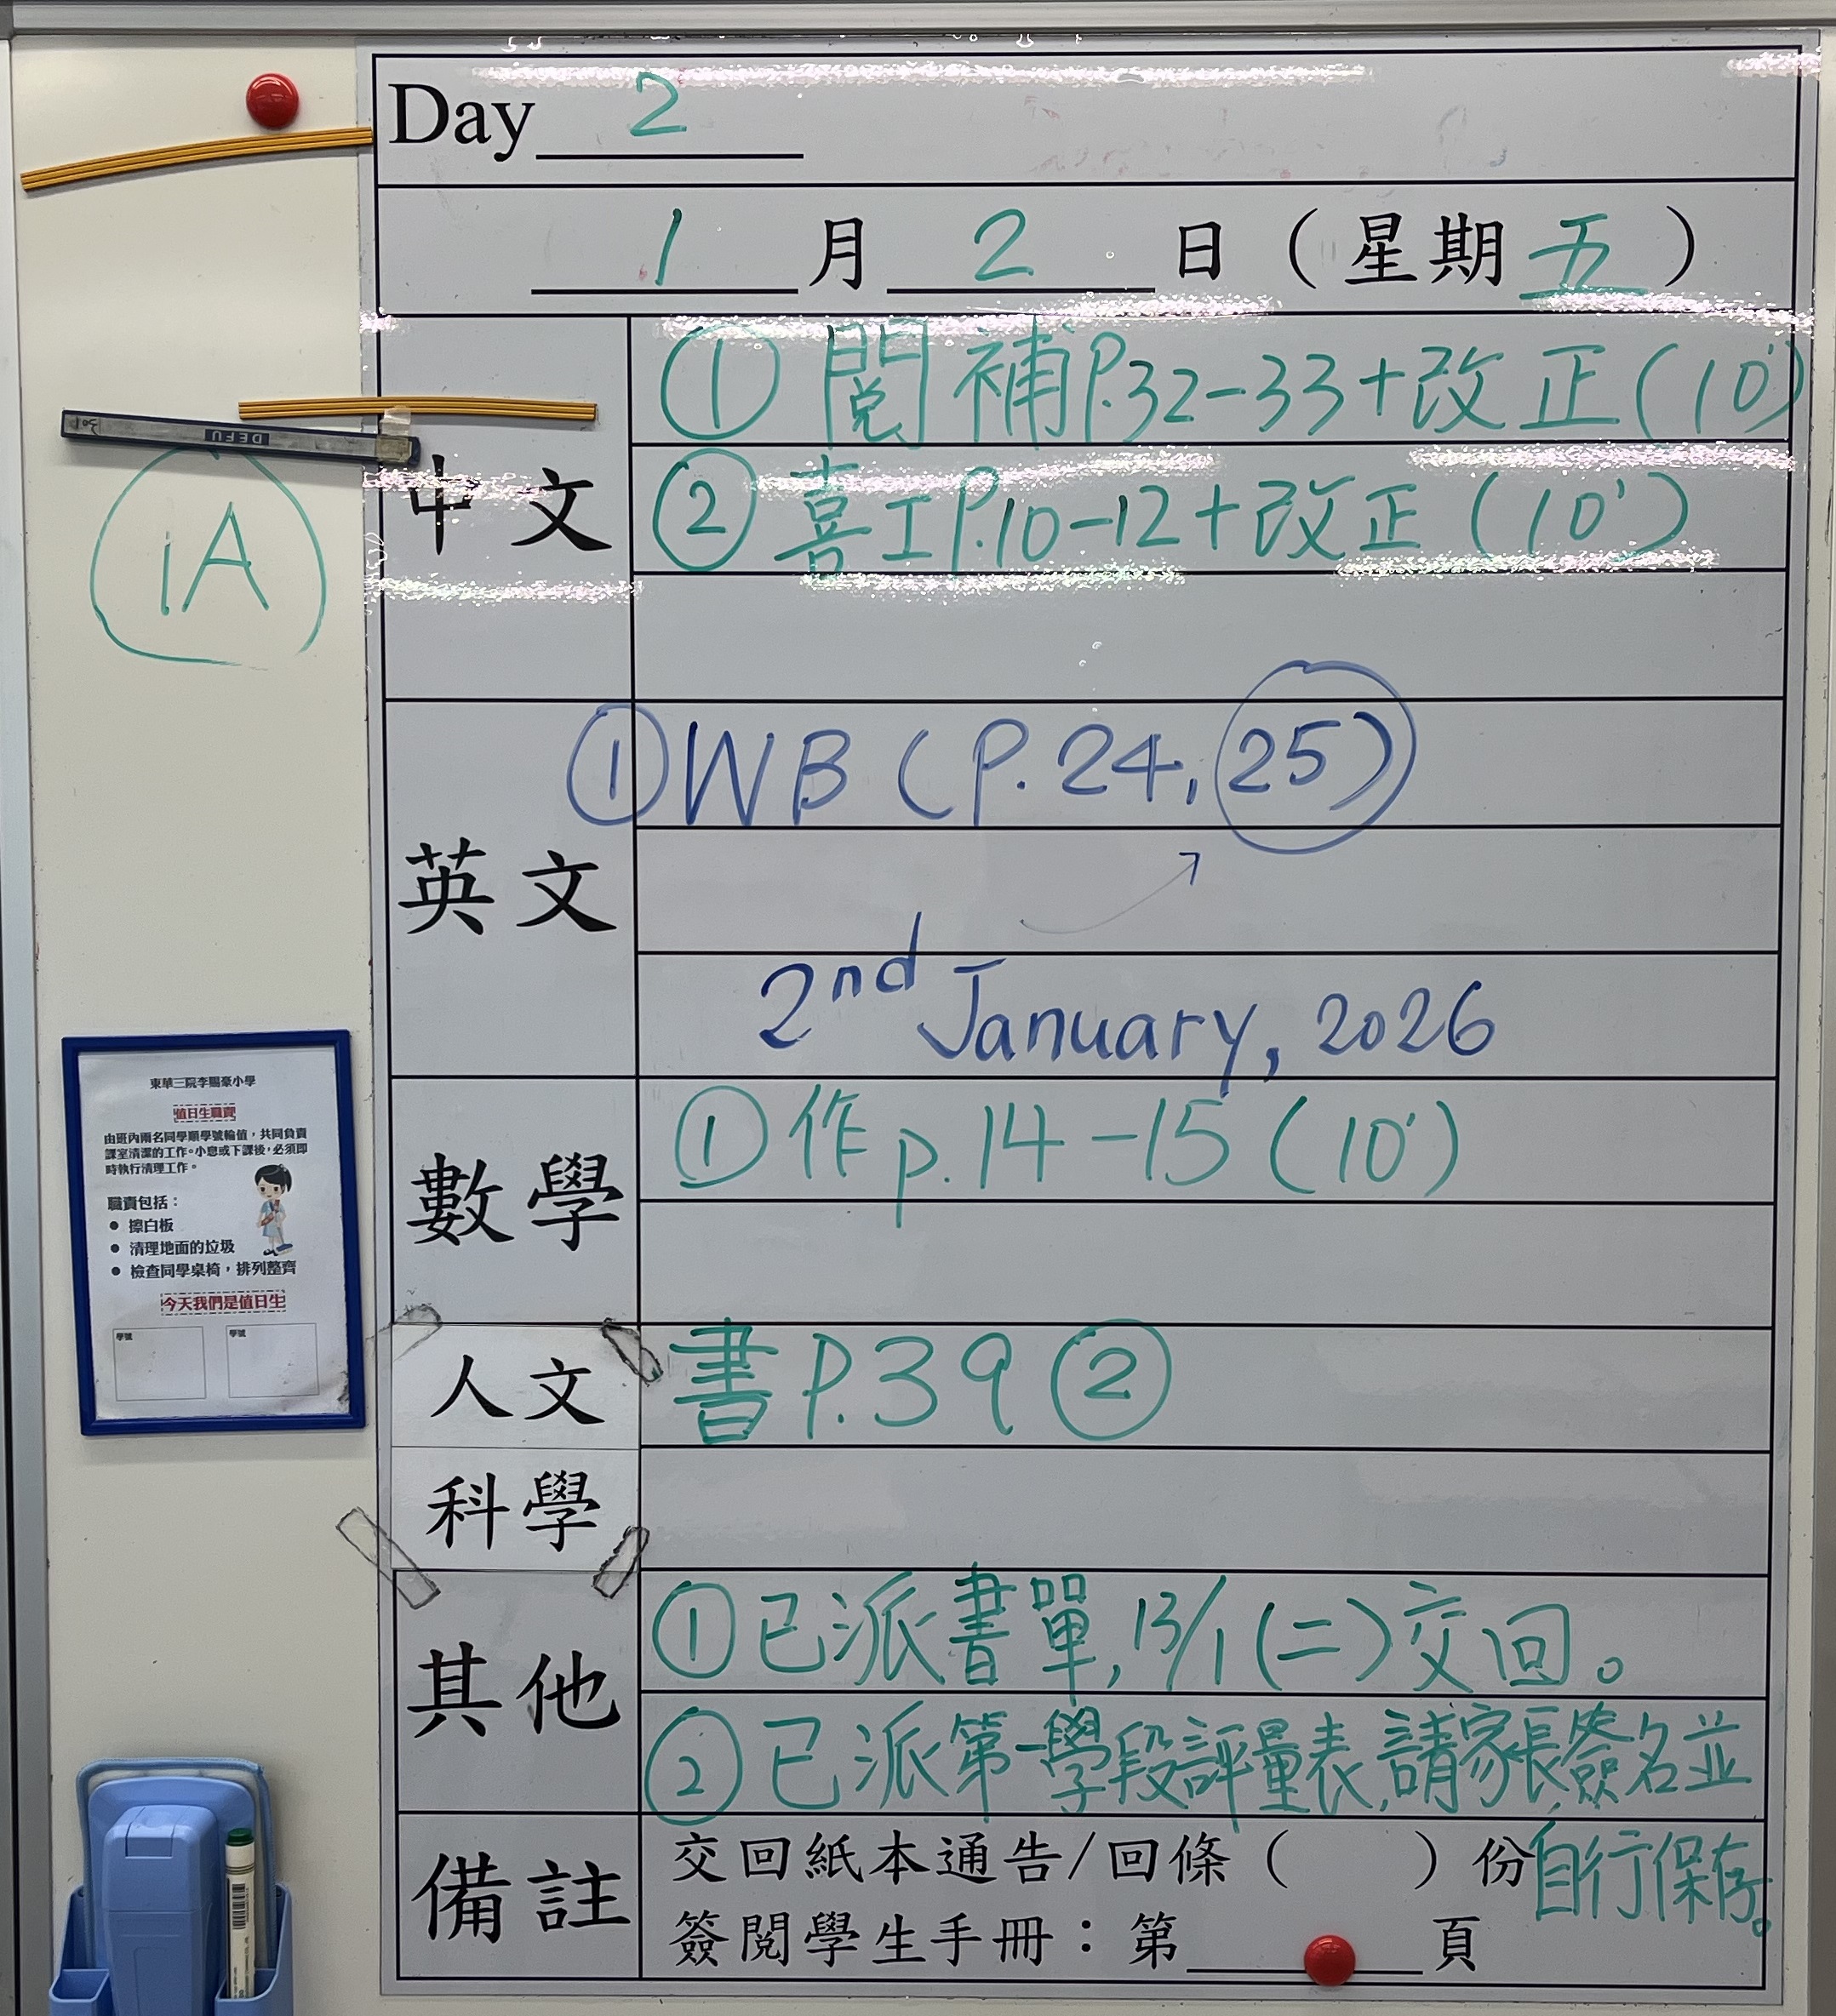 Day 2
1 月 2 日（星期五）
中文
① 閱補P.32-33+改正(10')
② 喜工P.10-12+改正(10')
1A
DEFU
英文
① WB (P.24, 25)
2nd January, 2026
數學
① 作p.14-15(10')
人文
書P.39②
科學
其他
① 已派書單,13/1(二)交回。
② 已派第一學段評量表,請家長簽名並
自行保存。
備註
交回紙本通告/回條（ ）份
簽閱學生手冊：第 頁
東華三院李賜豪小學
值日生職責
由班內兩名同學順學號輪值，共同負責
課室清潔的工作。小息或下課後，必須即
時執行清理工作。
職責包括：
● 擦白板
● 清理地面的垃圾
● 檢查同學桌椅，排列整齊
今天我們是值日生
學號 學號